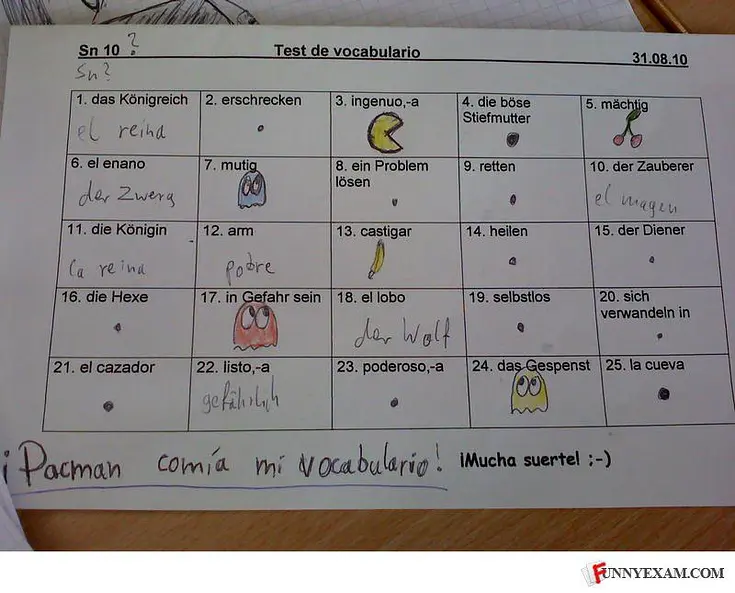 Sn 10 ? Test de vocabulario 31.08.10
Sn?
1. das Königreich
el reina
2. erschrecken
3. ingenuo,-a
4. die böse
Stiefmutter
5. mächtig
6. el enano
der Zwerg
7. mutig
8. ein Problem
lösen
9. retten
10. der Zauberer
el magen
11. die Königin
la reina
12. arm
pobre
13. castigar
14. heilen
15. der Diener
16. die Hexe
17. in Gefahr sein
18. el lobo
der Wolf
19. selbstlos
20. sich
verwandeln in
21. el cazador
22. listo,-a
gefährlich
23. poderoso,-a
24. das Gespenst
25. la cueva
¡Pacman comía mi vocabulario! ¡Mucha suerte! ;-)
FUNNYEXAM.COM